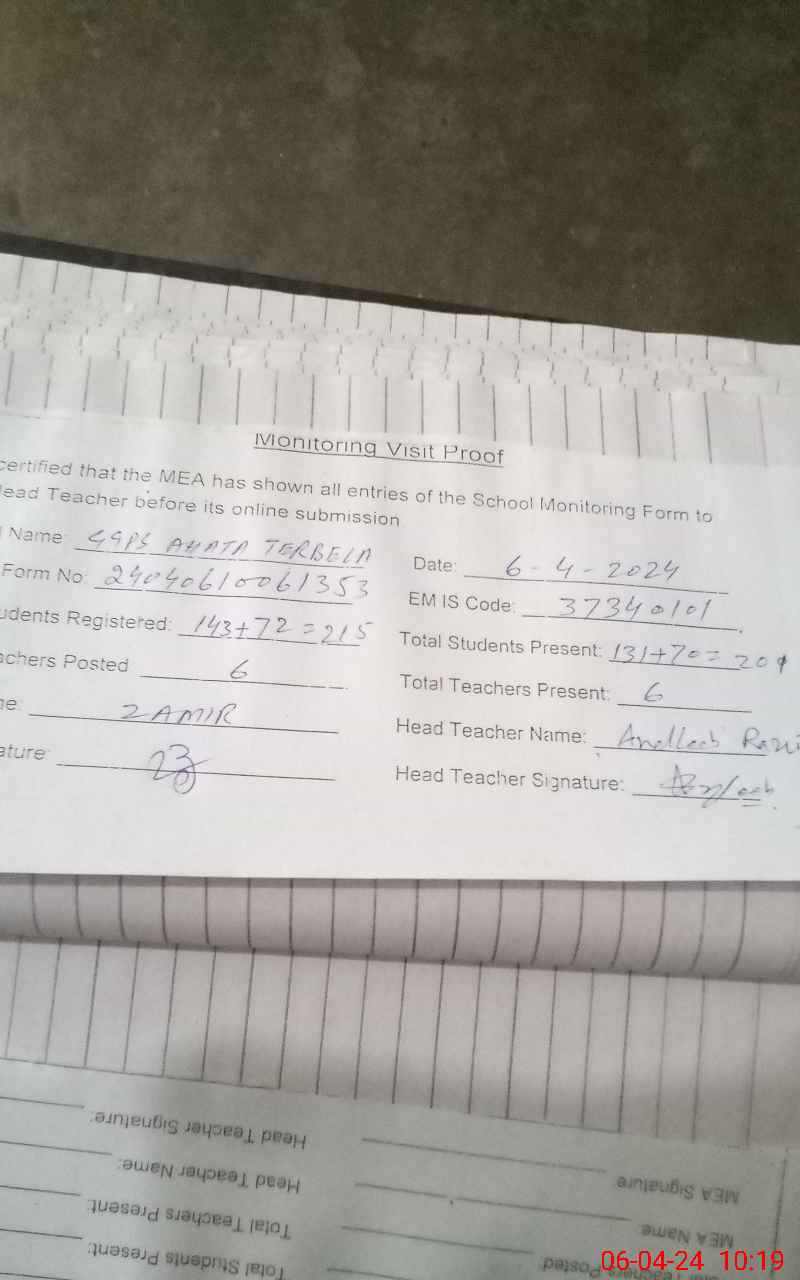 Monitoring Visit Proof
certified that the MEA has shown all entries of the School Monitoring Form to
Head Teacher before its online submission
Name: GGPS AHATA TERBELA Date: 6-4-2024
Form No: 24040610061353 EMIS Code: 37340101
udents Registered: 143+72=215 Total Students Present: 131+70=201
achers Posted 6 Total Teachers Present: 6
ne: ZAMIR Head Teacher Name: Andleeb Razi
ature: Head Teacher Signature:
Head Teacher Signature: MEA Signature
Head Teacher Name: MEA Name
Total Teachers Present: Teachers Posted
Total Students Present:
06-04-24 10:19